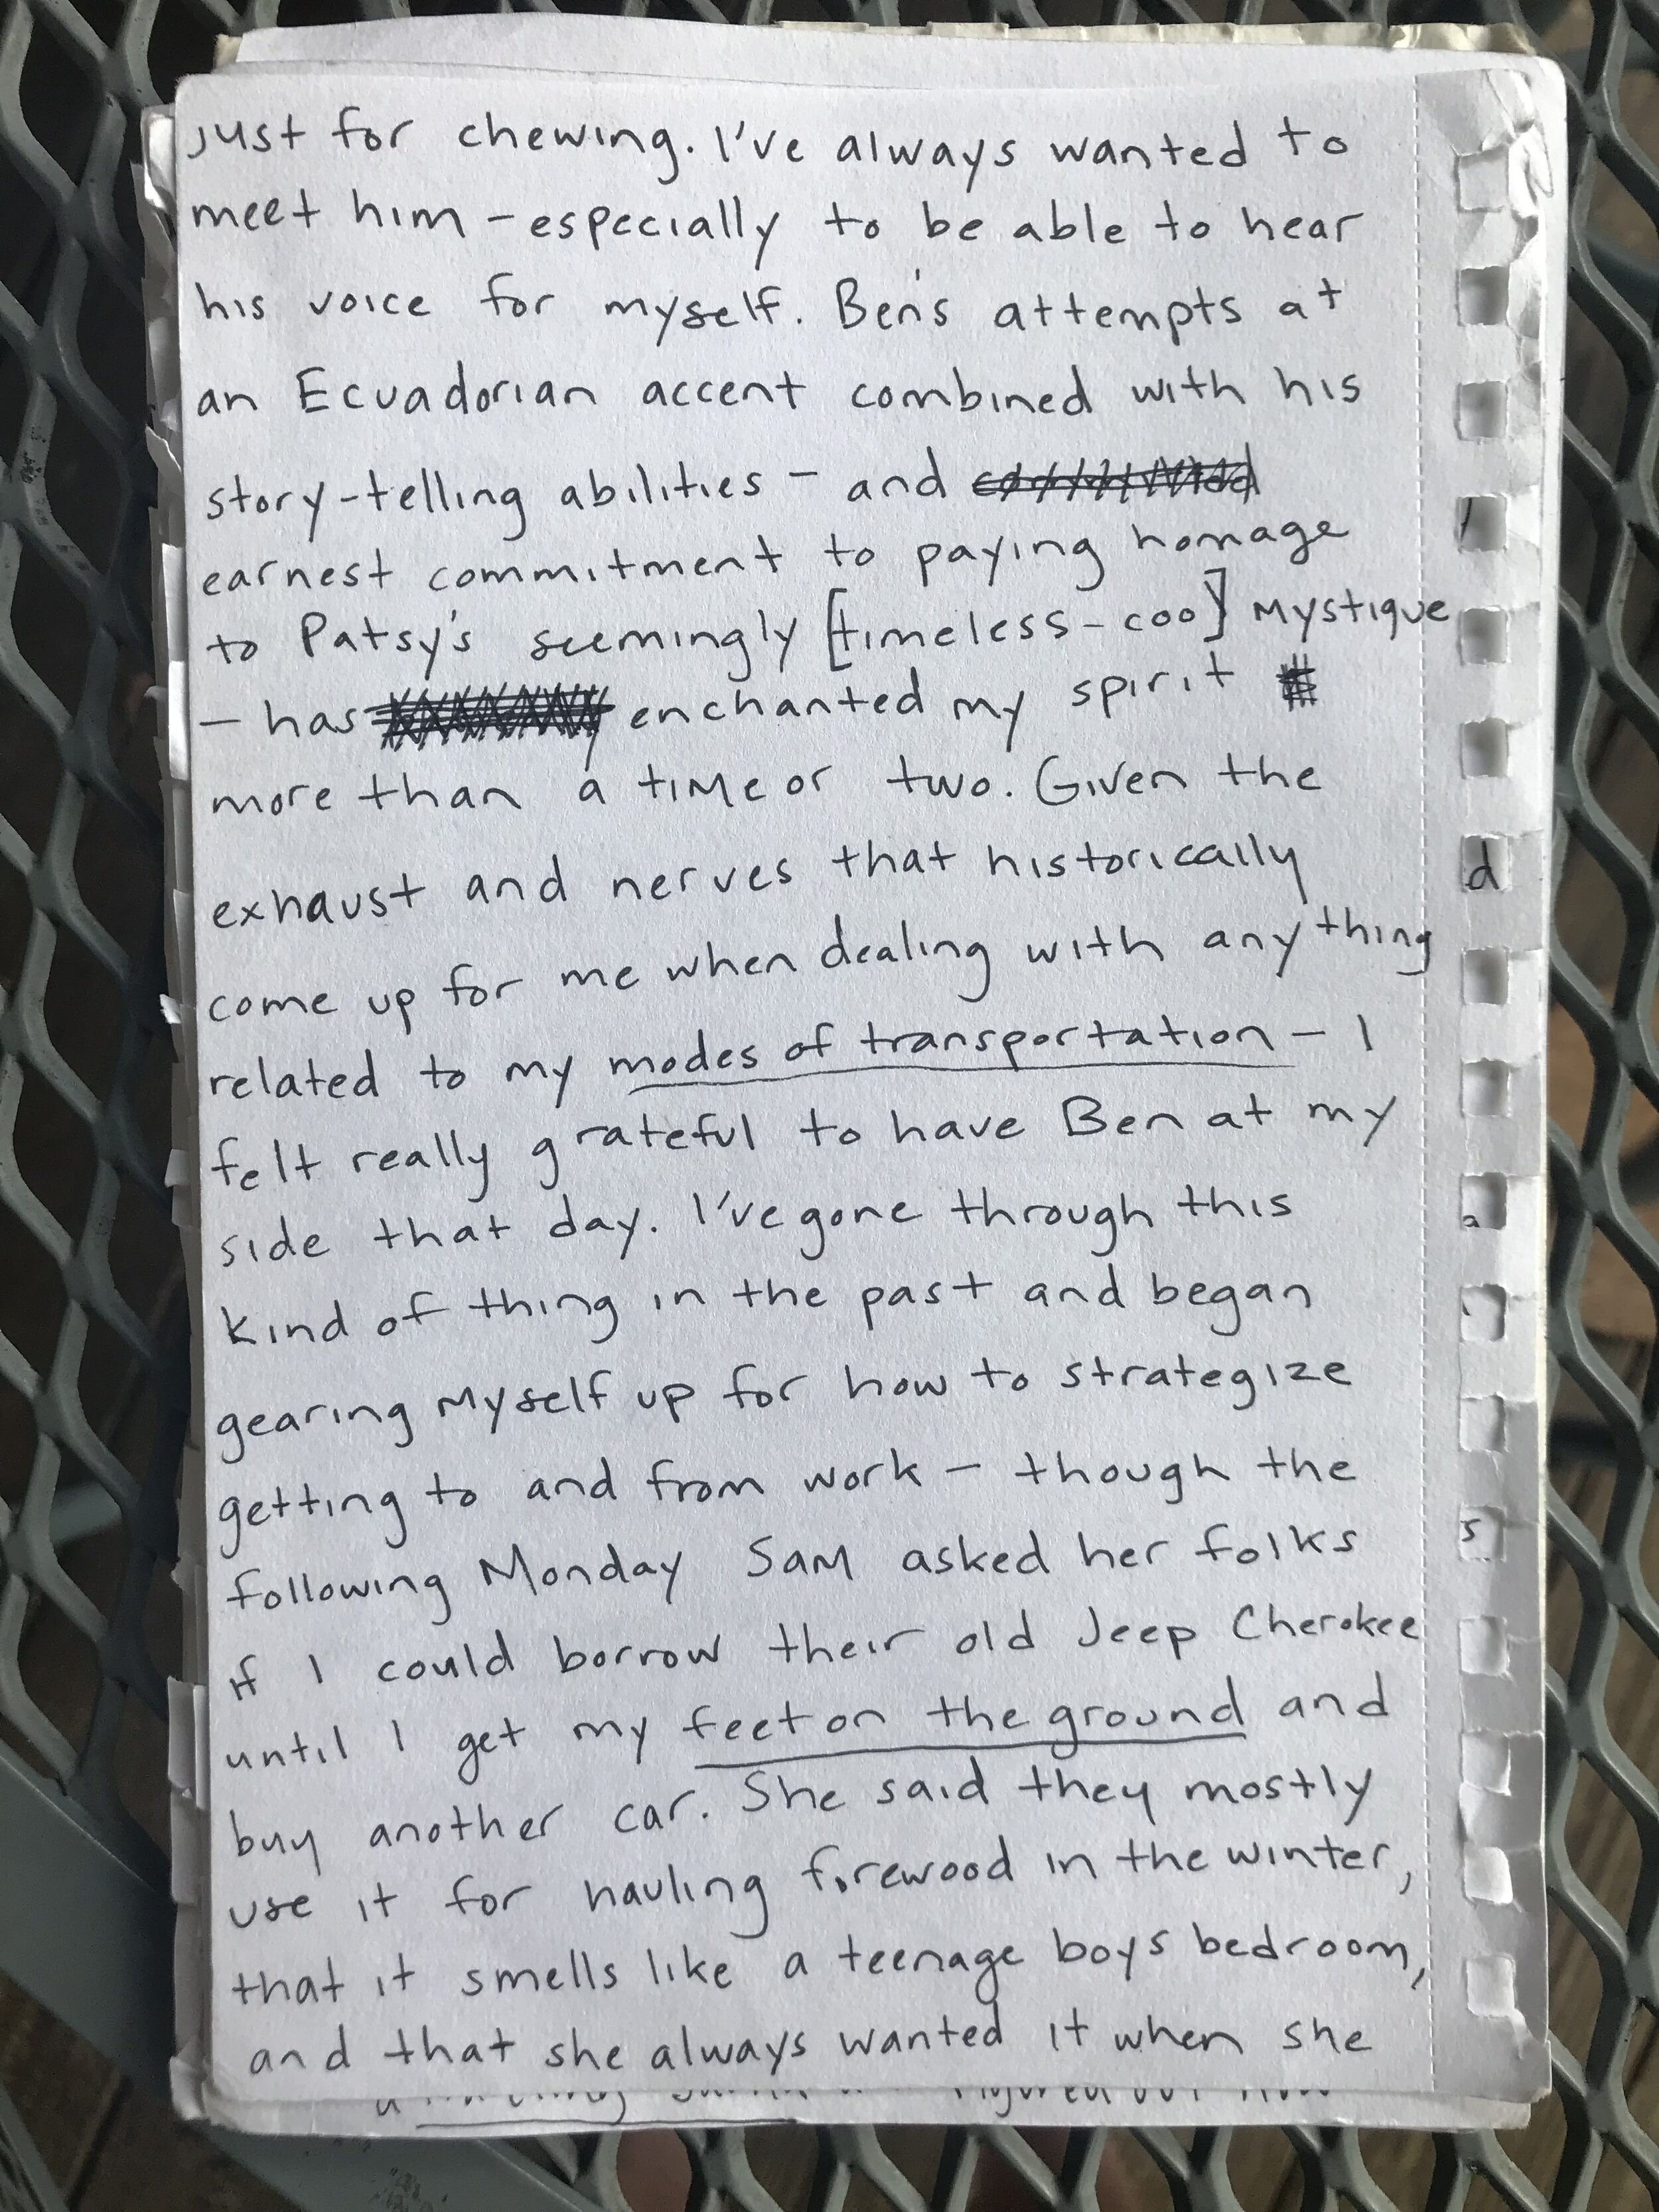 just for chewing. I've always wanted to
meet him – especially to be able to hear
his voice for myself. Ben's attempts at
an Ecuadorian accent combined with his
story-telling abilities – and
earnest commitment to paying homage
to Patsy's seemingly [timeless-coo] mystique
– has enchanted my spirit
more than a time or two. Given the
exhaust and nerves that historically
come up for me when dealing with anything
related to my modes of transportation – I
felt really grateful to have Ben at my
side that day. I've gone through this
kind of thing in the past and began
gearing myself up for how to strategize
getting to and from work – though the
following Monday Sam asked her folks
if I could borrow their old Jeep Cherokee
until I get my feet on the ground and
buy another car. She said they mostly
use it for hauling firewood in the winter,
that it smells like a teenage boys bedroom,
and that she always wanted it when she